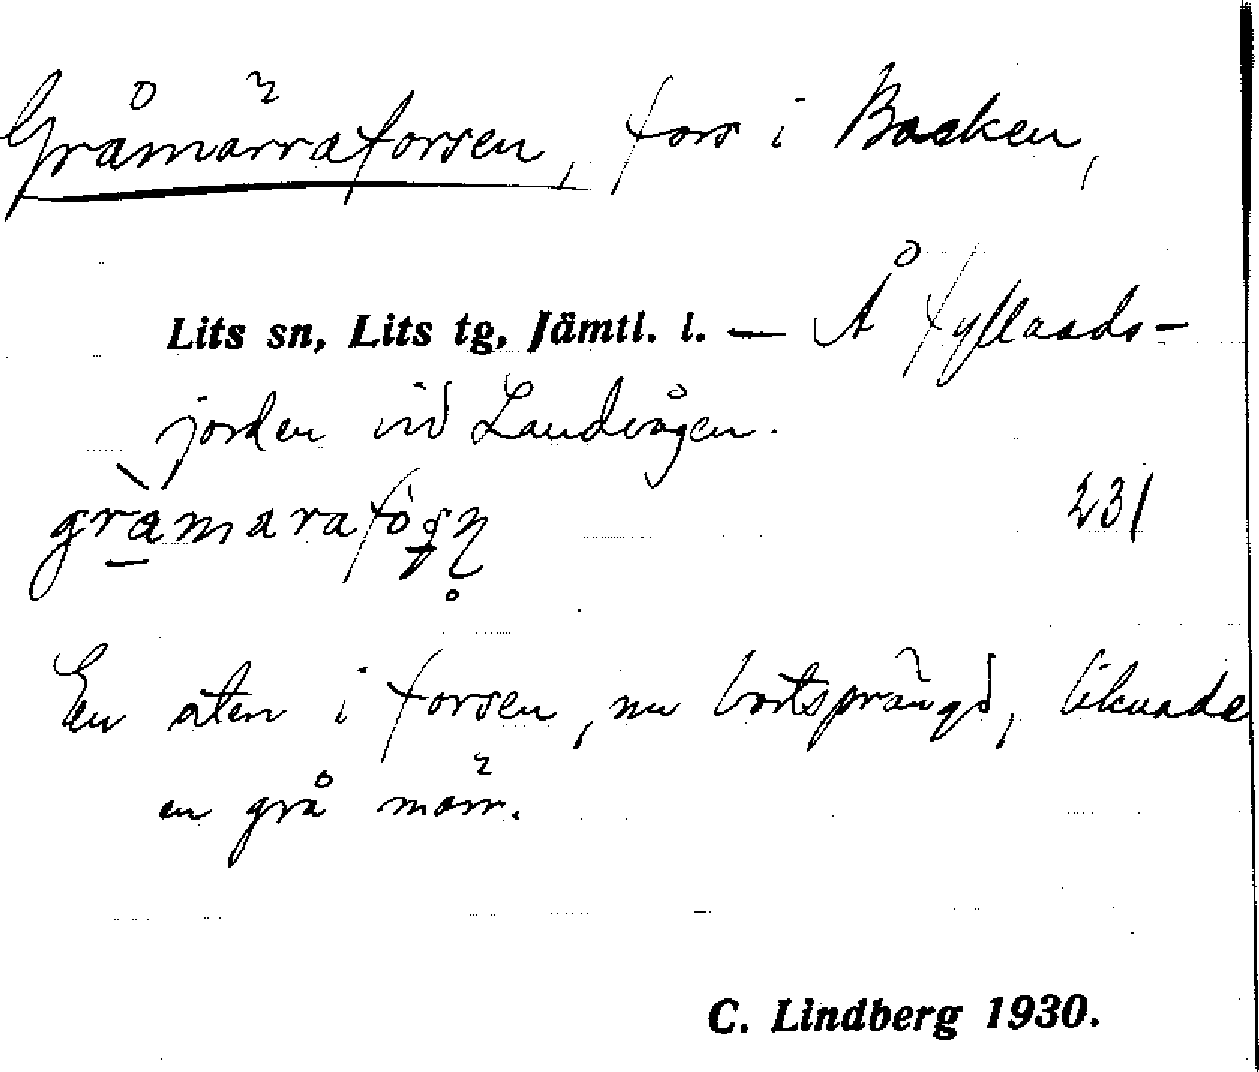 Gråmärraforsen, fors i Backen,
Lits sn, Lits tg, Jämtl. l. — Å Kyllands-
jorden vid Landvågen.
231
En sten i forsen, nu bortsprängd, liknade
en grå märr.
C. Lindberg 1930.